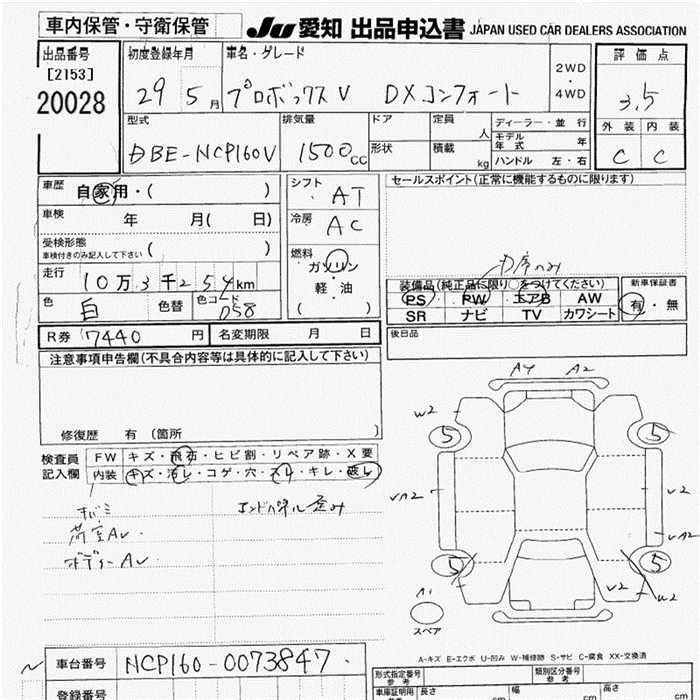 車内保管・守衛保管
JU 愛知 出品申込書 JAPAN USED CAR DEALERS ASSOCIATION
出品番号
[2153]
20028
初度登録年月
29 5月
車名・グレード
プロボックスV DXコンフォート
2WD
・
4WD
評価点
3.5
外装 内装
C C
型式
DBE-NCP160V
排気量
1500cc
ドア
形状
定員
人
積載
kg
ディーラー・並行
モデル年式 年
ハンドル 左・右
車歴
自家用・( )
車検 年 月( 日)
受検形態
車検付きのみ記入して下さい ( )
走行
10万3千254km
色
白
色替
色コード
058
シフト
AT
冷房
AC
燃料
ガソリン
軽・油
( )
セールスポイント(正常に機能するものに限ります)
装備品(純正品に限り○をつけてください)
PS PW エアB AW
SR ナビ TV カワシート
新車保証書
有・無
後日品
R券 7440円
名変期限 月 日
注意事項申告欄(不具合内容等は具体的に記入して下さい)
修復歴 有 (箇所 )
検査員
記入欄
FW キズ・飛石・ヒビ割・リペア跡・X要
内装 キズ・汚レ・コゲ・穴・スレ・キレ・破レ
キバミ
荷室AV
ボディーAV
エンドパネル歪み
AY A2
W2
5
5
W2
5
5
V2
W2
A1
スペア
A-キズ E-エクボ U-凹み W-補修跡 S-サビ C-腐食 XX-交換済
車台番号
NCP160-0073847
登録番号
形式指定番号
参考
類別区分番号
参考
車庫証明用
長さ cm
幅 cm
高さ cm